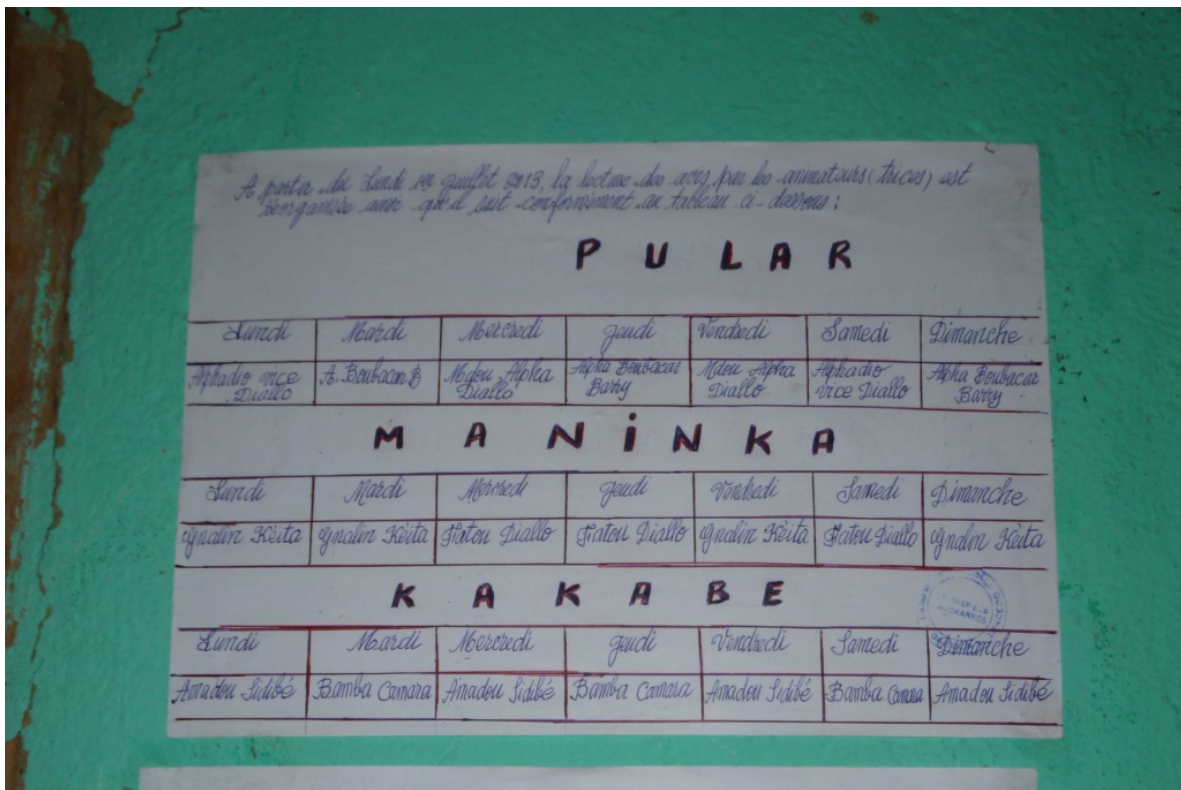 A partir du Lundi 1er Juillet 2013, la lecture des avis par les animateurs (trices) est
réorganisée ainsi qu'il suit conformément au tableau ci-dessous :
PULAR
Lundi Mardi Mercredi Jeudi Vendredi Samedi Dimanche
Alphadio vice Diallo A. Boubacar B Mdou Alpha Diallo Alpha Boubacar Barry Mdou Alpha Diallo Alphadio vice Diallo Alpha Boubacar Barry
MANINKA
Lundi Mardi Mercredi Jeudi Vendredi Samedi Dimanche
Gnalin Kèita Gnalin Kèita Fatou Diallo Fatou Diallo Gnalin Kèita Fatou Diallo Gnalin Kèita
KAKABE
Lundi Mardi Mercredi Jeudi Vendredi Samedi Dimanche
Amadou Sidibé Bamba Camara Amadou Sidibé Bamba Camara Amadou Sidibé Bamba Camara Amadou Sidibé